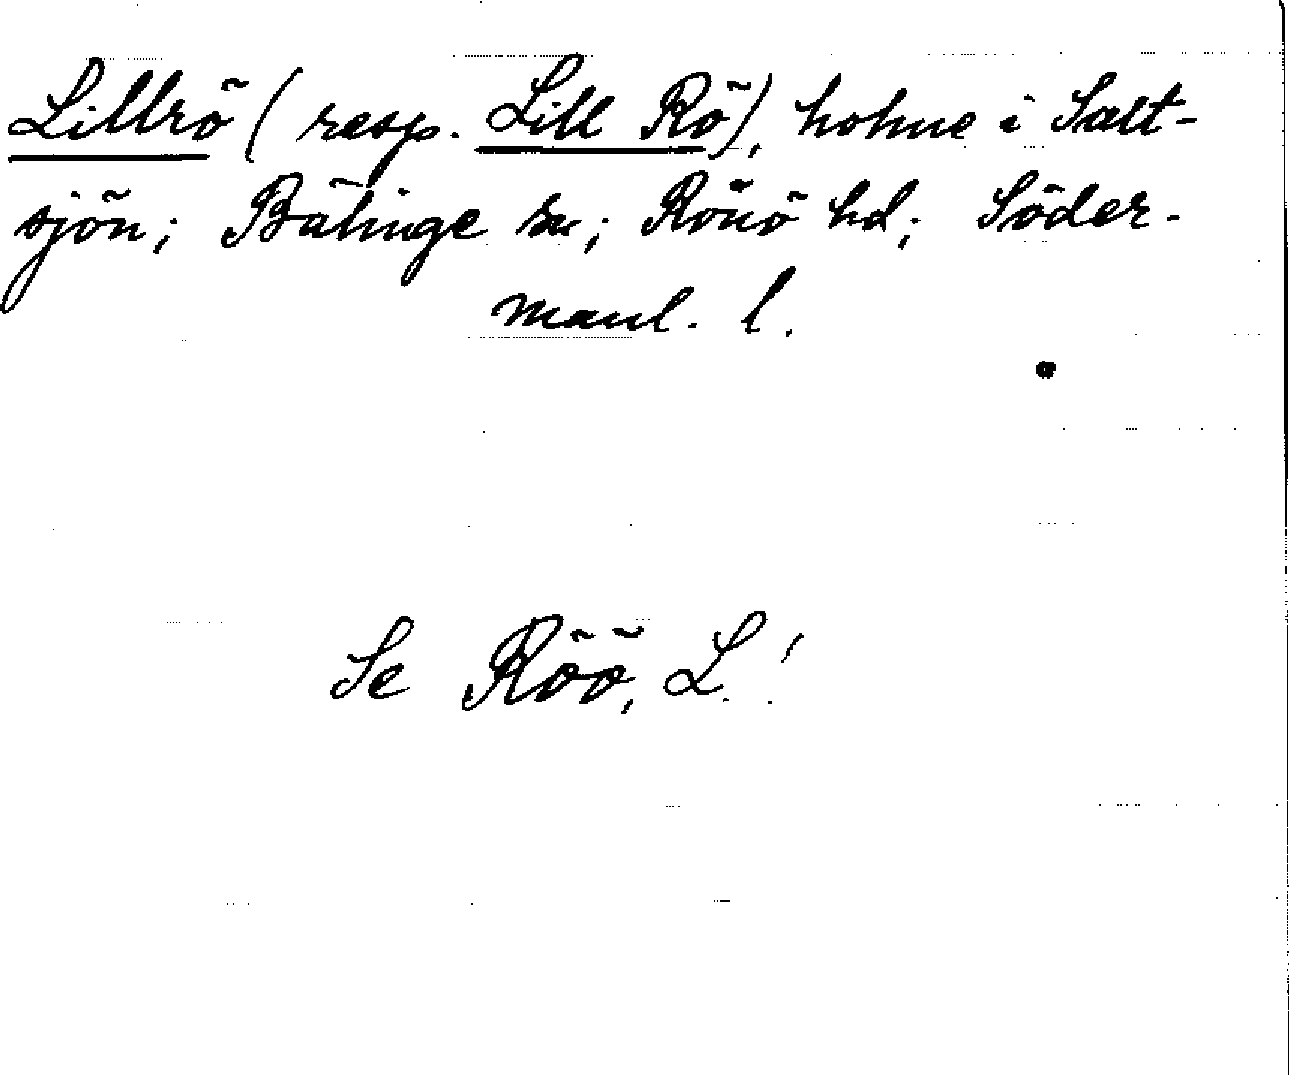 Lillrö (resp. Lill Rö), holme i Salt-
sjön; Bälinge sn; Rönö hd; Söder-
manl. l.
Se Röö, L.!